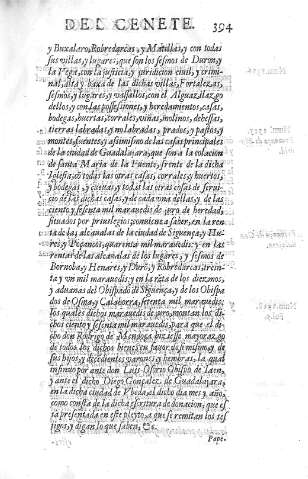 DEL CENETE. 394
y Buxalaro, Robredarcas, y Matillas, y con todas
sus villas, y lugares, que son los sesmos de Duron, y
la Vega, con la justicia, y juridicion civil, y crimi-
nal, alta y baxa de las dichas villas, Fortalezas,
sesmos, y lugares, y vassallos, con el Alguazilazgo
dellos, y con las possessiones, y heredamientos, casas,
bodegas, huertas, torres, viñas, molinos, debessas,
tierras labradas, y no labradas, prados, y pastos, y
montes, fuentes, y assimismo de las casas principales
de la ciudad de Guadalajara, que son a la colacion
de santa Maria de la Fuente, frente de la dicha
Iglesia, con todas las otras casas, corrales, y huertos,
y bodegas, y cocinas, y todas las otras casas de servi-
cio de las dichas casas, y de cada una dellas, y de las
ciento y sesenta mil maravedis de juro de heredad,
situados por privilegio; conviene a saber, en la ren-
ta de las alcavalas de la ciudad de Siguença, y Hue-
res, y Pozancos, quarenta mil maravedis: y en las
rentas de las alcavalas de los lugares, y sesmos de
Bornoba, y Henares, y Duro, y Robredarcas, trein-
ta y un mil maravedis: y en la renta de los diezmos,
y aduanas del Obispado de Siguença, y de los Obispa-
dos de Osma, y Calahorra, setenta mil maravedis:
los quales dichos maravedis de juro, montan los di-
chos ciento y sesenta mil maravedis, para que el di-
cho don Rodrigo de Mendoça hiziesse mayorazgo
de todos los dichos bienes en favor de si mismo, y de
sus hijos, y decendientes varones, y hembras, la qual
insinuò por ante don Luis Osorio Obispo de Iaen,
y ante el dicho Diego Gonçalez de Guadalajara,
en la dicha ciudad de Vbeda, el dicho dia mes y año,
como consta de la dicha escritura de donacion, que es-
tà presentada en este pleyto, a que se remitan los tes-
tigos, y digan lo que saben, &c.
Pape.